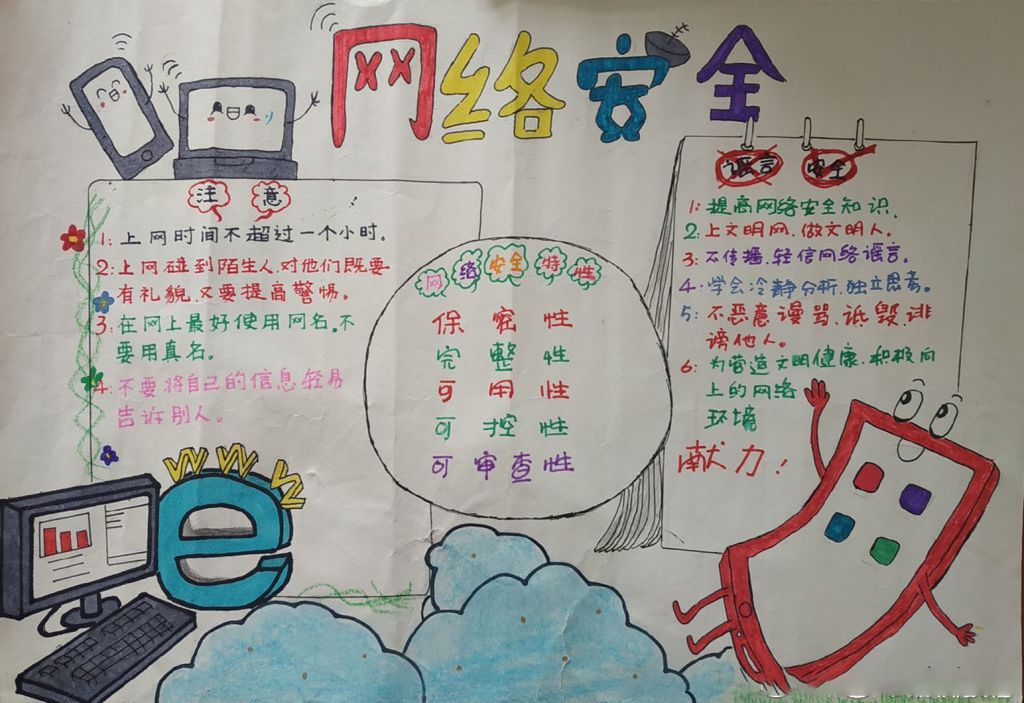 网络安全
注意
1:上网时间不超过一个小时.
2:上网碰到陌生人.对他们既要
有礼貌.又要提高警惕.
3:在网上最好使用网名.不
要用真名。
4:不要将自己的信息轻易
告诉别人。
网络安全特性
保密性
完整性
可用性
可控性
可审查性
谣言 安全
1:提高网络安全知识.
2:上文明网.做文明人.
3:不传播.轻信网络谣言。
4:学会冷静分析.独立思考。
5:不恶意谩骂.诋毁.诽
谤他人。
6:为营造文明健康.积极向
上的网络
环境
献力!
WWW
e